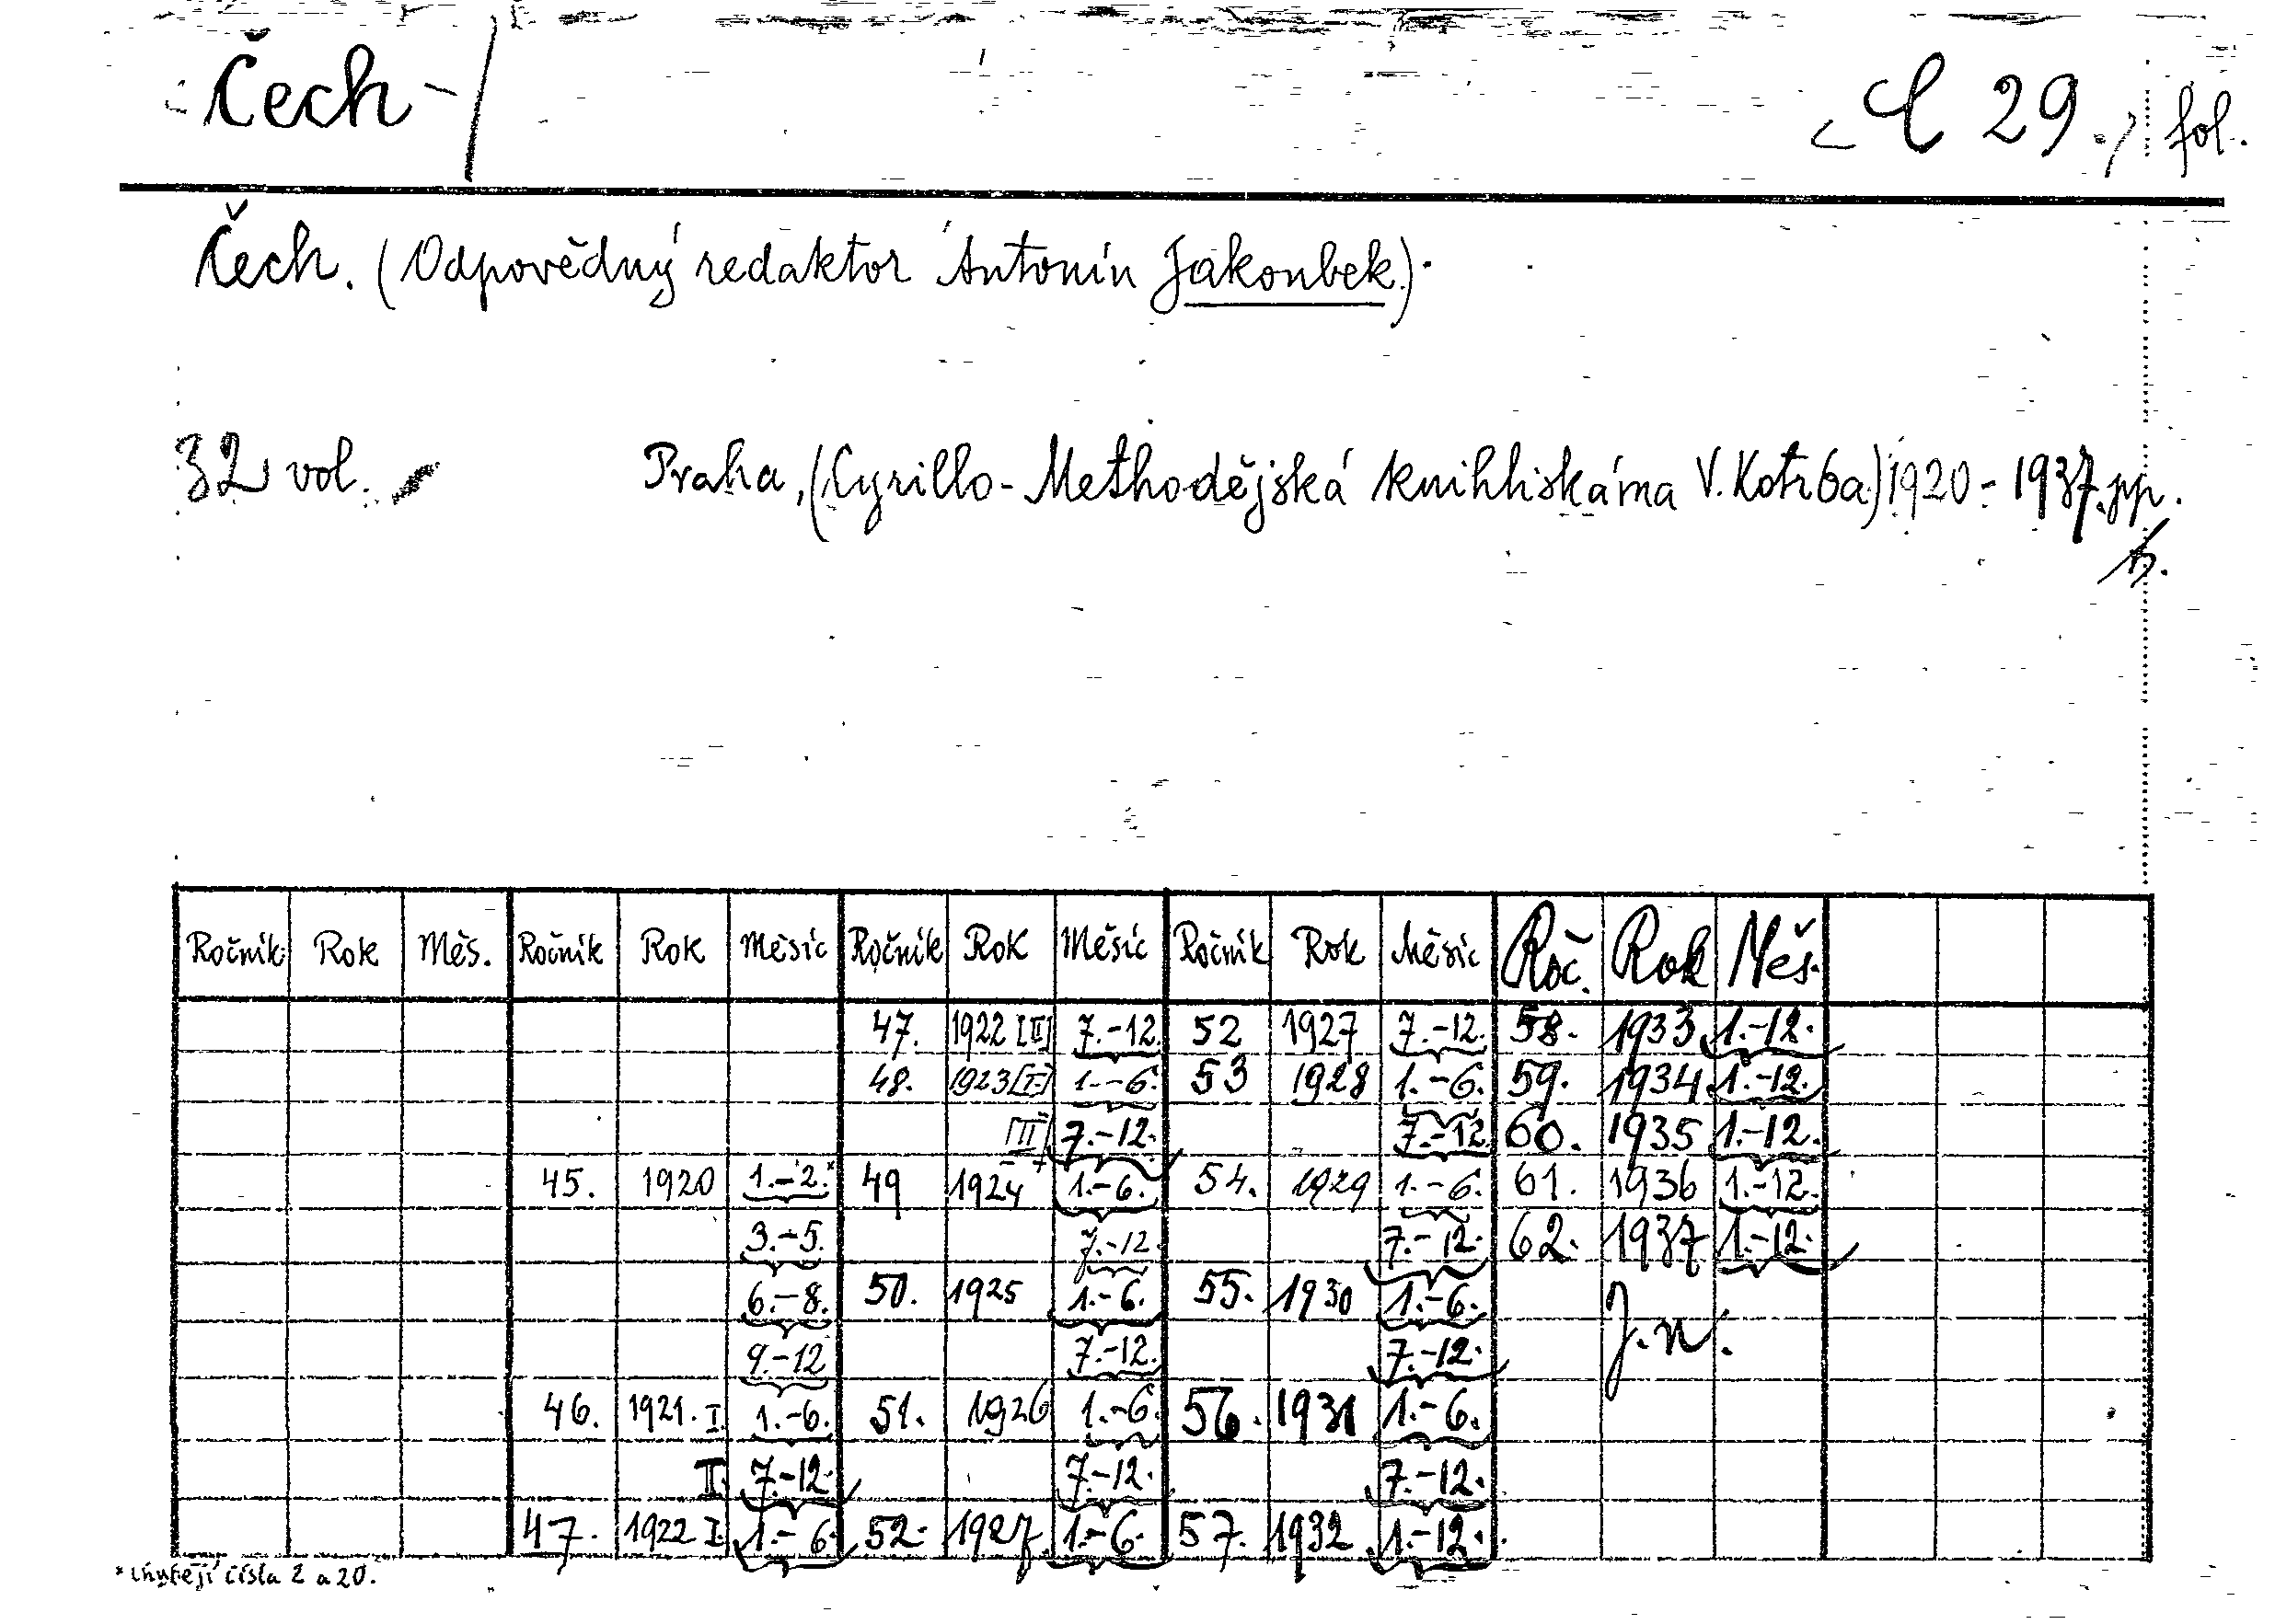 Čech - / C 29., fol.
Čech. (Odpovědný redaktor Antonín Jakoubek.)
32 vol. Praha, (Cyrillo-Methodějská knihtiskárna V. Kotrba) 1920 - 1937. pp.
Ročník Rok Měs. Ročník Rok Měsíc Ročník Rok Měsíc Ročník Rok Měsíc Roč. Rok Měs.
47. 1922 [II] 7.-12. 52 1927 7.-12. 58. 1933 1.-12.
48. 1923 [I.] 1.-6. 53 1928 1.-6. 59. 1934. 1.-12.
[II] 7.-12. 7.-12. 60. 1935 1.-12.
45. 1920 1.-2.* 49 1924 1.-6. 54. 1929 1.-6. 61. 1936 1.-12.
3.-5. 7.-12. 7.-12. 62. 1937 1.-12.
6.-8. 50. 1925 1.-6. 55. 1930 1.-6.
9.-12 7.-12. 7.-12. J. n.
46. 1921. I. 1.-6. 51. 1926 1.-6. 56. 1931 1.-6.
II. 7.-12. 7.-12. 7.-12.
47. 1922 I. 1.-6. 52. 1927. 1.-6. 57. 1932. 1.-12.
* Chybějí čísla 2 a 20.